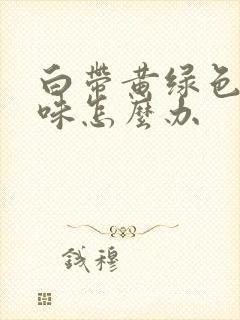 白帶黄绿色
味怎麼办
钱穆